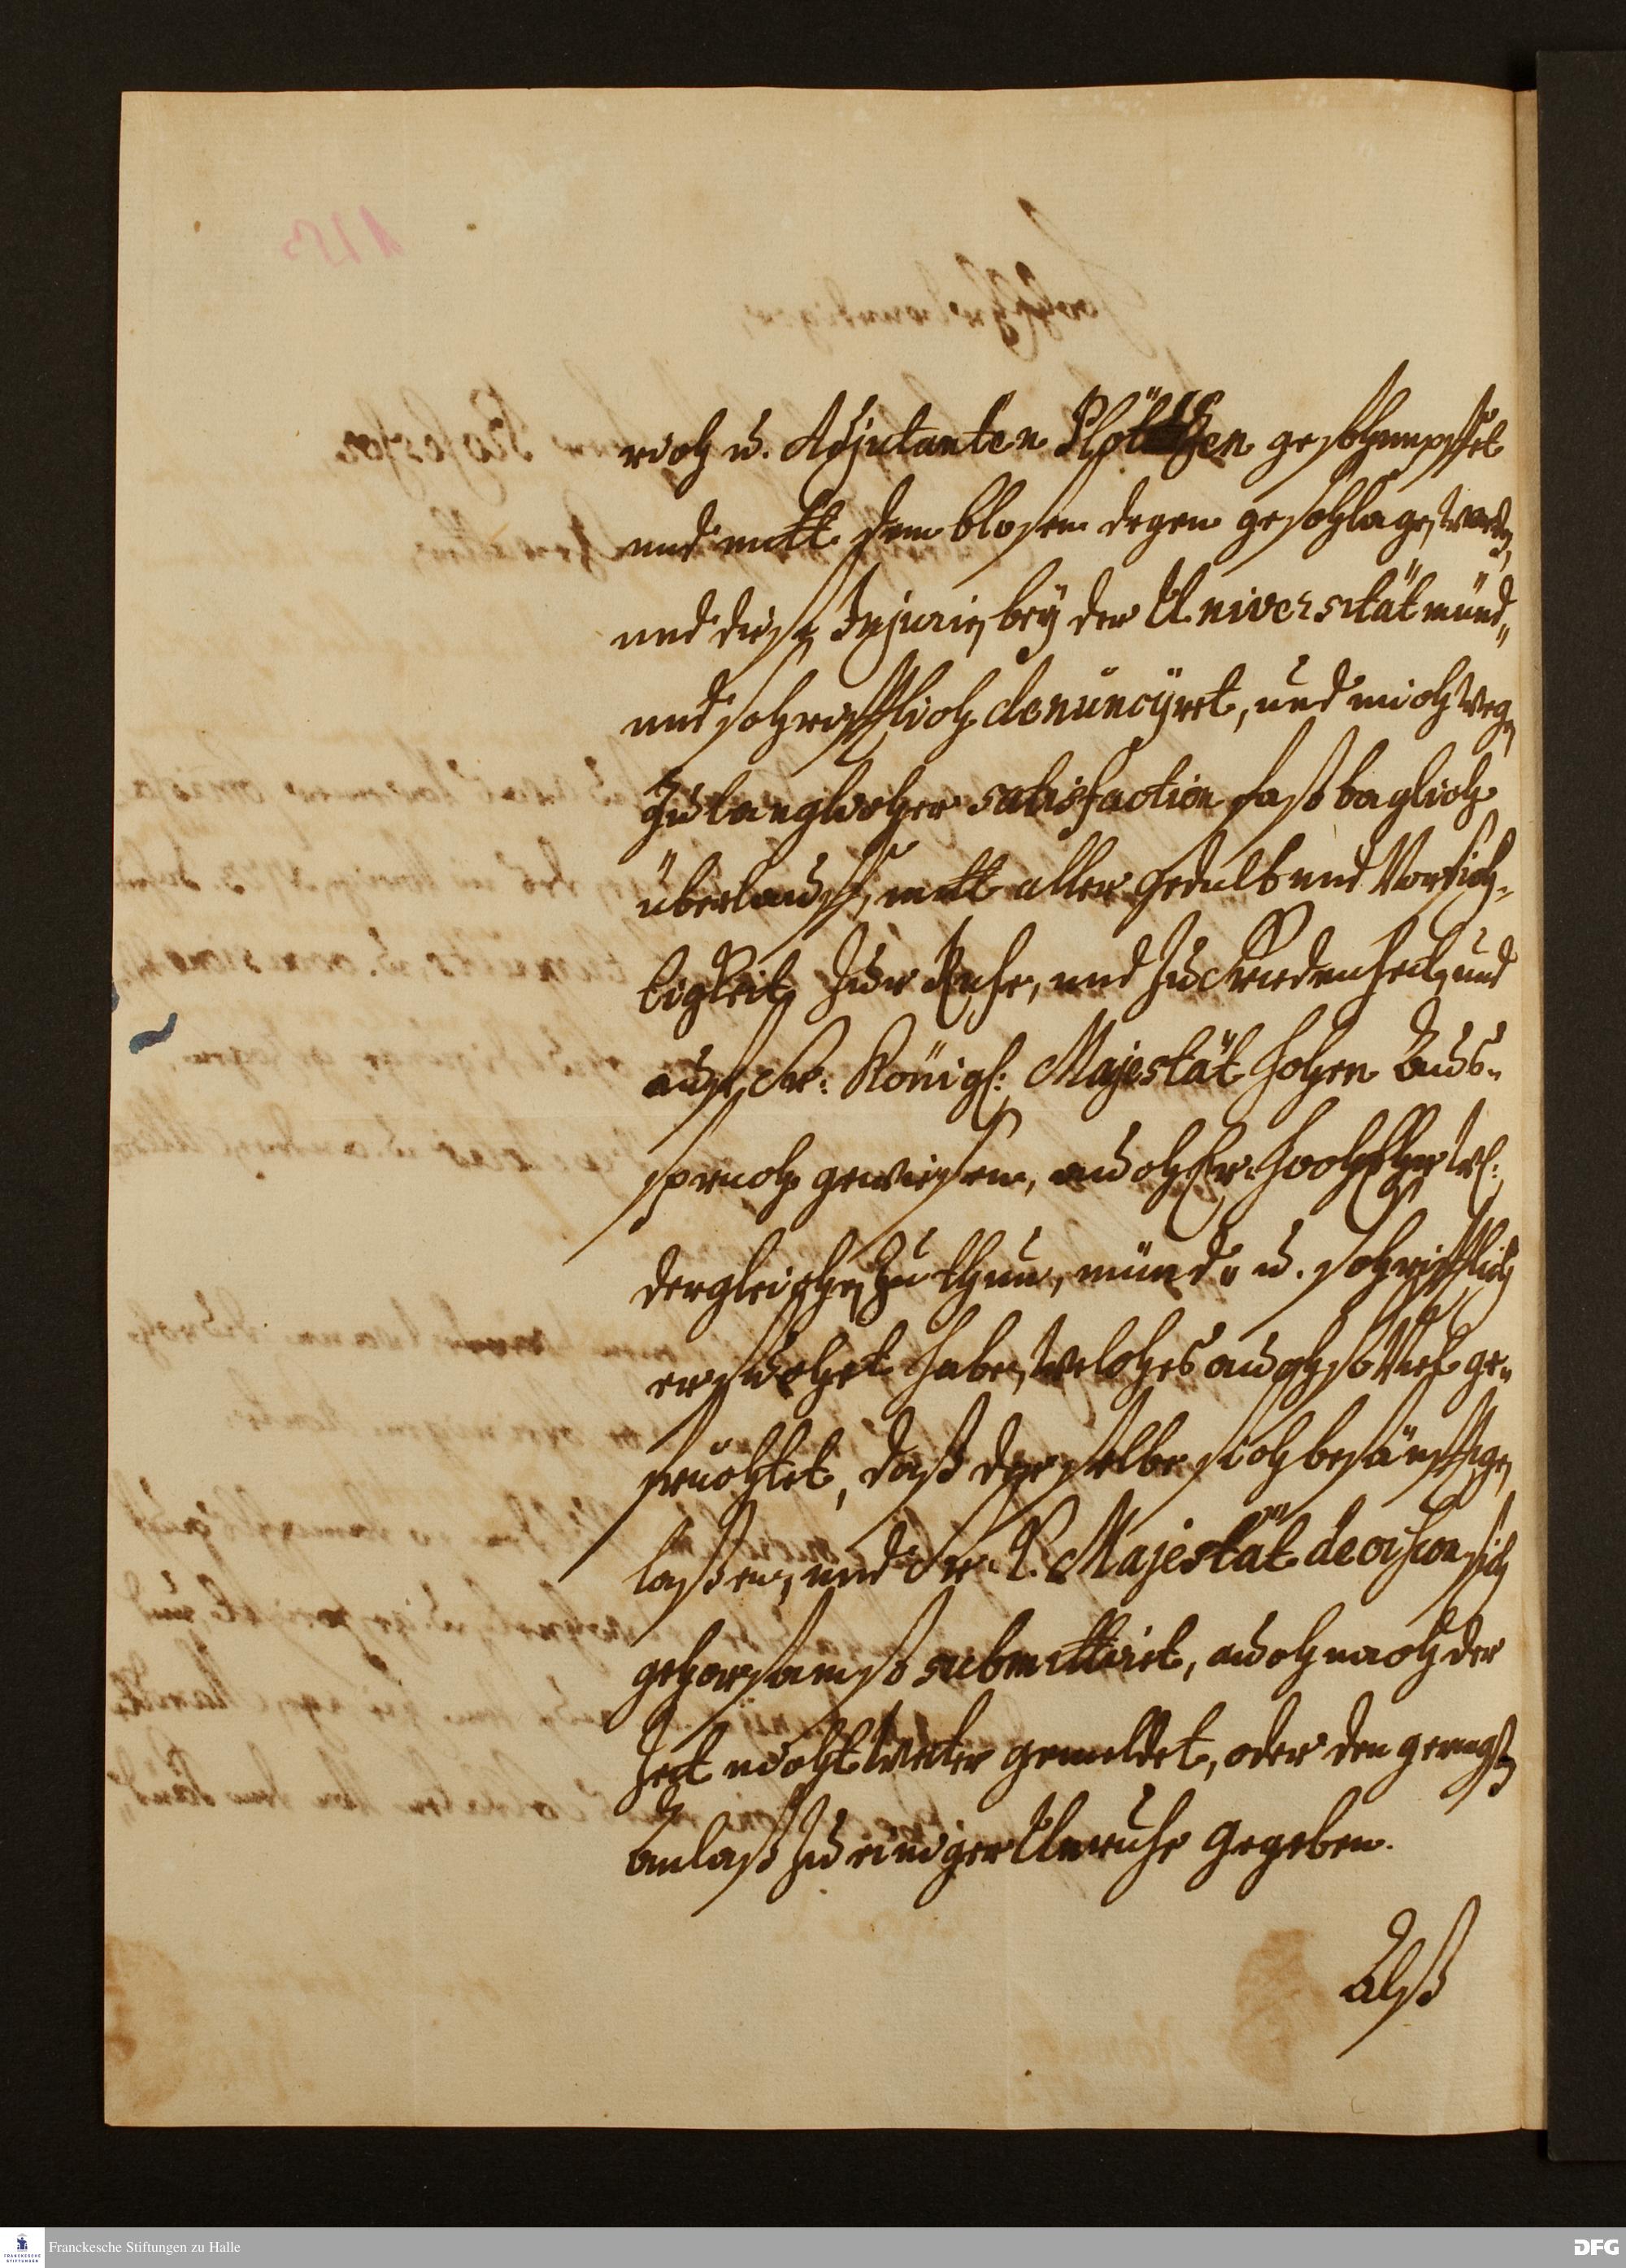 rich u. Adjutanten Plötßen geschimpffet
und mitt dem blosen degen geschlagen worden,
und diese Injurien bey der Universität münd„
und schrifftlich denuncÿret, und mich wegen
Zulänglicher satisfaction fast täglich
überlauffen, mitt aller Gedult und Vorsich„
tigkeit zur Ruhe, und Zufriedenheit, und
auff Sr: Königl: Majestät hohen Aus„
spruch gewiesen, auch Ew: HochEhrw:
dergleichen zu thun, münd„ u. schrifftlich
ersuchet habe, welches auch so viel ge„
fruchtet, daß derselbe sich besänfftigen
laßen, und Sr. K. Majestät decision sich
gehorsamst submittiret, auch nach der
Zeit nicht weiter gemeldet, oder den geringsten
Anlaß zu einiger Unruhe gegeben.
Alß
Franckesche Stiftungen zu Halle
DFG